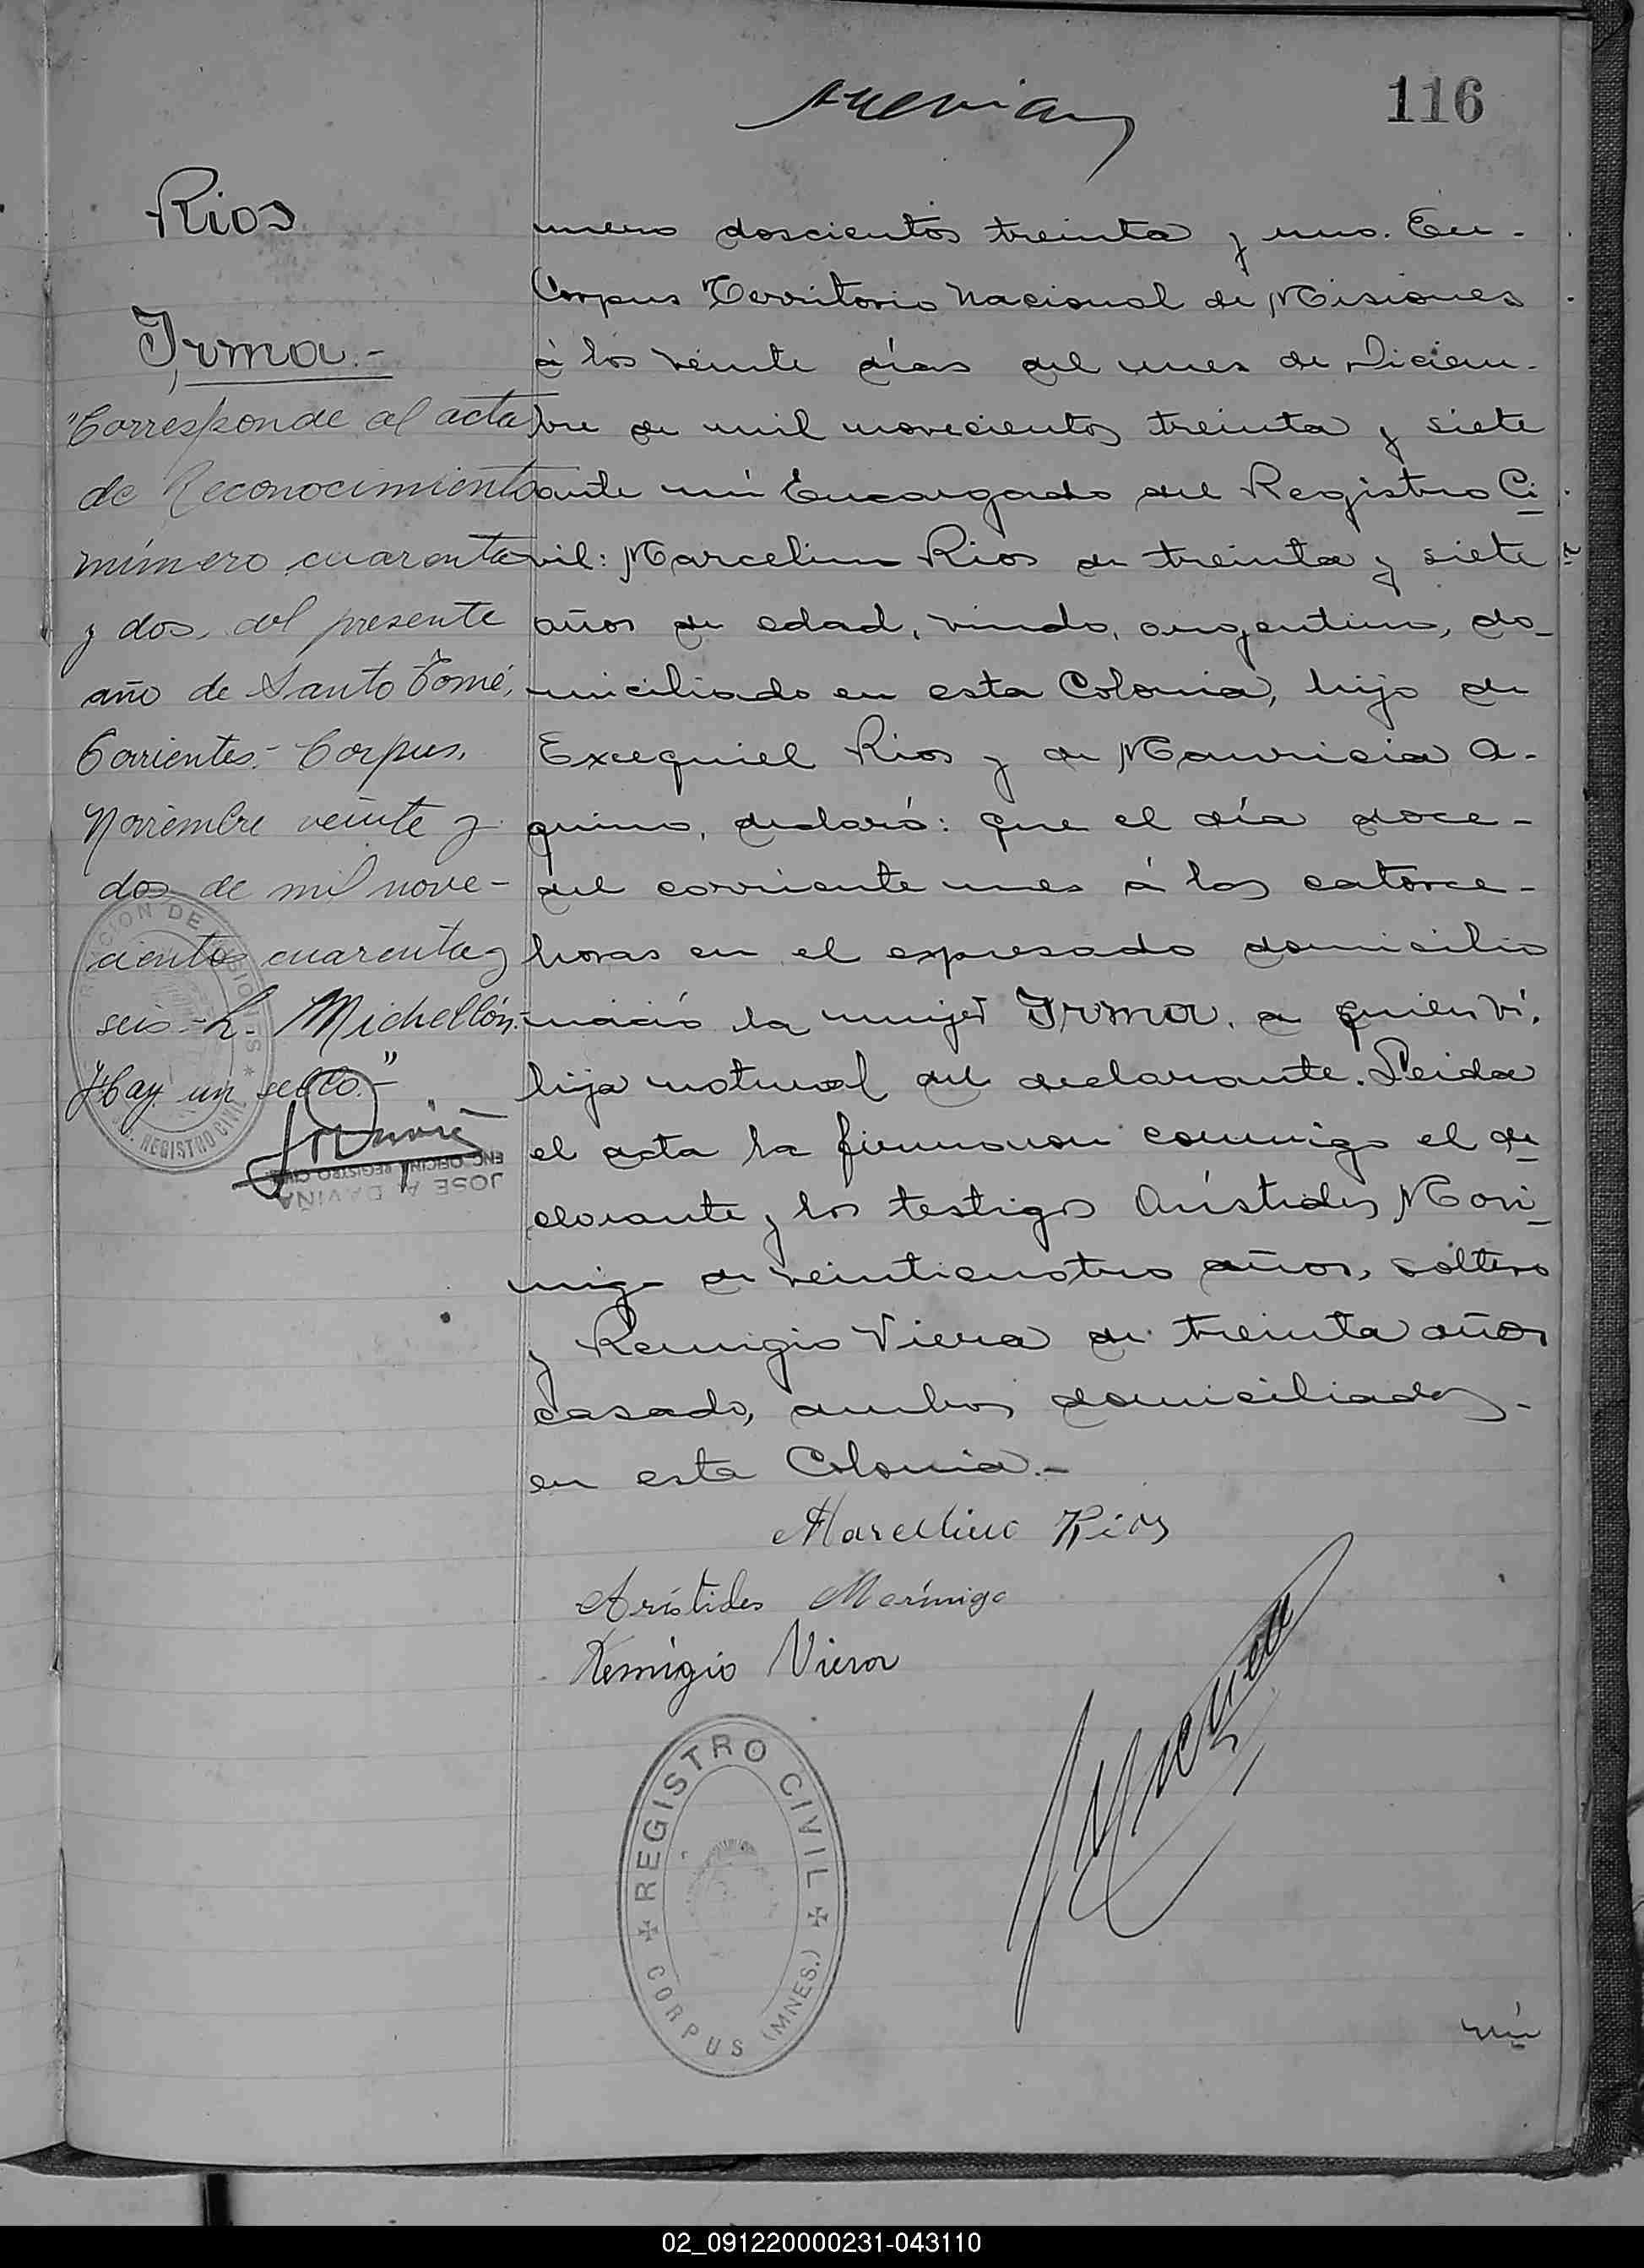 116
Rios
Irma.-
"Corresponde al acta
de Reconocimiento
número cuarenta
y dos, del presente
año de Santo Tomé,
Corrientes.- Corpus,
Noviembre veinte y
dos de mil nove-
cientos cuarenta y
seis.- L. Michellón.-
Hay un sello."-
JOSE A DAVIÑA
ENC. OFICINA REGISTRO CIVIL
REGISTRO CIVIL
mero doscientos treinta y uno. En-
Corpus Territorio Nacional de Misiones
á los veinte días del mes de Diciem-
bre de mil novecientos treinta y siete
ante mí Encargado del Registro Ci
vil: Marcelino Rios de treinta y siete
años de edad, viudo, argentino, do-
miciliado en esta Colonia, hijo de
Exequiel Rios y de Mauricia A-
quino, declaró: que el día doce-
del corriente mes á las catorce-
horas en el expresado domicilio
nació la mujer Irma, a quien ví,
hija natural del declarante. Leida
el acta la firmaron conmigo el de
clarante y los testigos Arístides Morí-
nigo de veinticuatro años, soltero
y Remigio Viera de treinta años
casado, ambos domiciliados-
en esta Colonia.-
Marcelino Rios
Arístides Morínigo
Remigio Viera
REGISTRO CIVIL
CORPUS (MNES.)
mí
02_091220000231-043110